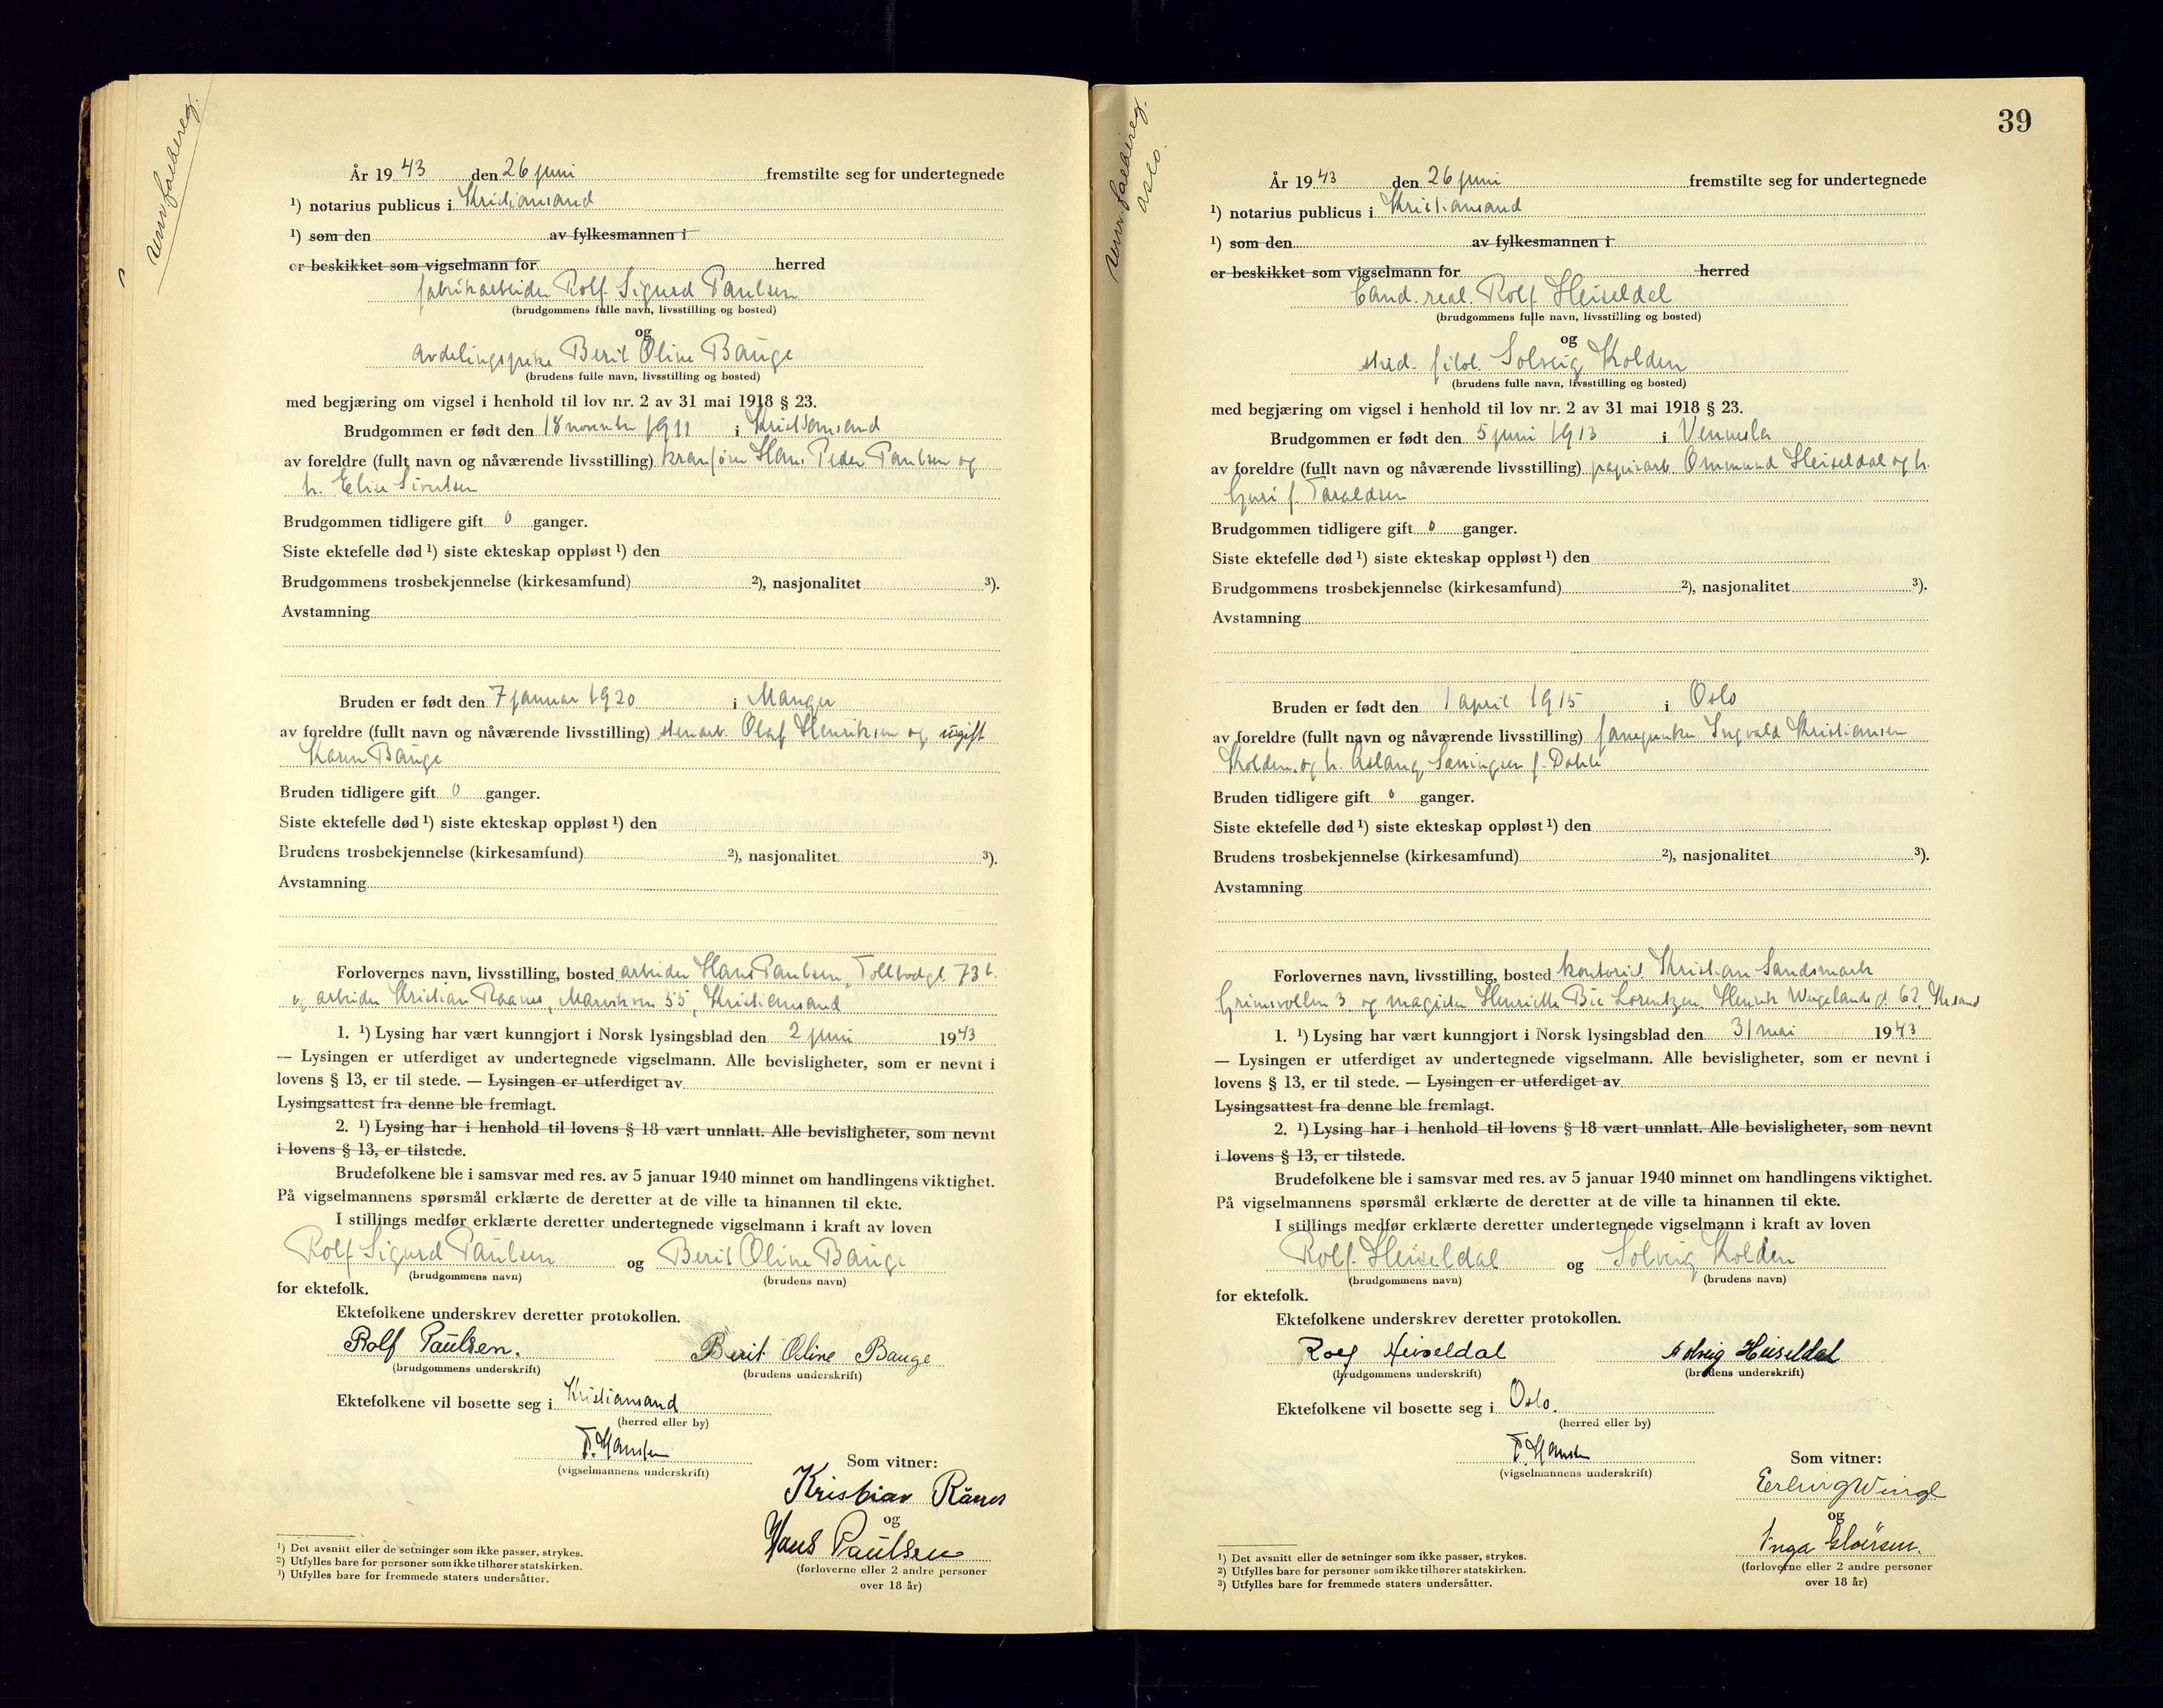 År 1943 den 26 juni fremstilte seg for undertegnede
¹) notarius publicus i Kristiansand
¹) som den av fylkesmannen i
er beskikket som vigselmann for herred
fabrikarbeider Rolf Sigurd Paulsen
(brudgommens fulle navn, livsstilling og bosted)
og
Berit Oline Bauge
(brudens fulle navn, livsstilling og bosted)
med begjæring om vigsel i henhold til lov nr. 2 av 31 mai 1918 § 23.
Brudgommen er født den 18 november 1911 i Kristiansand
av foreldre (fullt navn og nåværende livsstilling) Hans Peder Paulsen og
h. Elise Sivertsen
Brudgommen tidligere gift 0 ganger.
Siste ektefelle død ¹) siste ekteskap oppløst ¹) den
Brudgommens trosbekjennelse (kirkesamfund) ²), nasjonalitet ³).
Avstamning
Bruden er født den 7 januar 1920 i Manger
av foreldre (fullt navn og nåværende livsstilling) stenarb. Olaf Henriksen og ugift
Karen Bauge
Bruden tidligere gift 0 ganger.
Siste ektefelle død ¹) siste ekteskap oppløst ¹) den
Brudens trosbekjennelse (kirkesamfund) ²), nasjonalitet ³).
Avstamning
Forlovernes navn, livsstilling, bosted arbeider Hans Paulsen, Tollbodgt 73 b.
og arbeider Kristian Raanes, Marviksvn 55, Kristiansand
1. ¹) Lysing har vært kunngjort i Norsk lysingsblad den 2 juni 1943
— Lysingen er utferdiget av undertegnede vigselmann. Alle bevisligheter, som er nevnt i
lovens § 13, er til stede. — Lysingen er utferdiget av
Lysingsattest fra denne ble fremlagt.
2. ¹) Lysing har i henhold til lovens § 18 vært unnlatt. Alle bevisligheter, som nevnt
i lovens § 13, er tilstede.
Brudefolkene ble i samsvar med res. av 5 januar 1940 minnet om handlingens viktighet.
På vigselmannens spørsmål erklærte de deretter at de ville ta hinannen til ekte.
I stillings medfør erklærte deretter undertegnede vigselmann i kraft av loven
Rolf Sigurd Paulsen og Berit Oline Bauge
(brudgommens navn) (brudens navn)
for ektefolk.
Ektefolkene underskrev deretter protokollen.
Rolf Paulsen. Berit Oline Bauge
(brudgommens underskrift) (brudens underskrift)
Ektefolkene vil bosette seg i Kristiansand
(herred eller by)
T. Hansen
(vigselmannens underskrift)
Som vitner:
Kristian Rånes
og
Hans Paulsen
(forloverne eller 2 andre personer
over 18 år)
¹) Det avsnitt eller de setninger som ikke passer, strykes.
²) Utfylles bare for personer som ikke tilhører statskirken.
³) Utfylles bare for fremmede staters undersåtter.
39
Oslo.
År 1943 den 26 juni fremstilte seg for undertegnede
¹) notarius publicus i Kristiansand
¹) som den av fylkesmannen i
er beskikket som vigselmann for herred
Cand. real. Rolf Heiseldal
(brudgommens fulle navn, livsstilling og bosted)
og
stud. filol. Solveig Kolden
(brudens fulle navn, livsstilling og bosted)
med begjæring om vigsel i henhold til lov nr. 2 av 31 mai 1918 § 23.
Brudgommen er født den 5 juni 1913 i Vennesla
av foreldre (fullt navn og nåværende livsstilling) papirarb. Ommund Heiseldal og h.
Guri f. Taraldsen
Brudgommen tidligere gift 0 ganger.
Siste ektefelle død ¹) siste ekteskap oppløst ¹) den
Brudgommens trosbekjennelse (kirkesamfund) ²), nasjonalitet ³).
Avstamning
Bruden er født den 1 april 1915 i Oslo
av foreldre (fullt navn og nåværende livsstilling) fanejunker Ingvald Kristiansen
Kolden og h. Aslaug f. Dahle
Bruden tidligere gift 0 ganger.
Siste ektefelle død ¹) siste ekteskap oppløst ¹) den
Brudens trosbekjennelse (kirkesamfund) ²), nasjonalitet ³).
Avstamning
Forlovernes navn, livsstilling, bosted kontorist Kristian Sandsmark
Grimsvollen 3 og magister Henriette Bie Lorentzen, Henrik Wergelands g. 62, Krsand
1. ¹) Lysing har vært kunngjort i Norsk lysingsblad den 31 mai 1943
— Lysingen er utferdiget av undertegnede vigselmann. Alle bevisligheter, som er nevnt i
lovens § 13, er til stede. — Lysingen er utferdiget av
Lysingsattest fra denne ble fremlagt.
2. ¹) Lysing har i henhold til lovens § 18 vært unnlatt. Alle bevisligheter, som nevnt
i lovens § 13, er tilstede.
Brudefolkene ble i samsvar med res. av 5 januar 1940 minnet om handlingens viktighet.
På vigselmannens spørsmål erklærte de deretter at de ville ta hinannen til ekte.
I stillings medfør erklærte deretter undertegnede vigselmann i kraft av loven
Rolf Heiseldal og Solveig Kolden
(brudgommens navn) (brudens navn)
for ektefolk.
Ektefolkene underskrev deretter protokollen.
Rolf Heiseldal Solveig Heiseldal
(brudgommens underskrift) (brudens underskrift)
Ektefolkene vil bosette seg i Oslo.
(herred eller by)
T. Hansen
(vigselmannens underskrift)
Som vitner:
Erling
og
Inga
(forloverne eller 2 andre personer
over 18 år)
¹) Det avsnitt eller de setninger som ikke passer, strykes.
²) Utfylles bare for personer som ikke tilhører statskirken.
³) Utfylles bare for fremmede staters undersåtter.